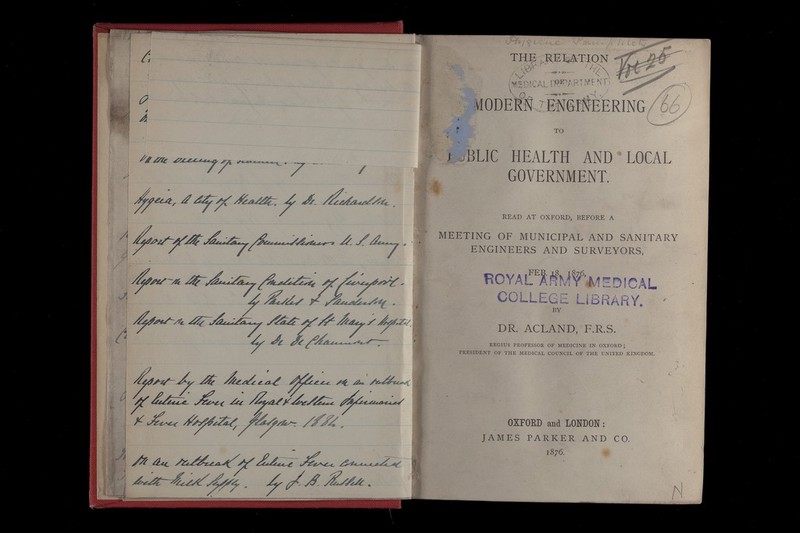 Hygeia, A City of Health. by Dr. Richardson.
Report of the Sanitary Commissioners U. S. Army.
Report on the Sanitary Condition of Liverpool
by Parkes & Sanderson.
Report on the Sanitary State of St Mary's Hospital,
by Dr De Chaumont.
Report by the Medical Officer on an outbreak
of Enteric Fever in Royal & Western Infirmaries
& Fever Hospital, Glasgow.
on an outbreak of Enteric Fever connected
with Milk Supply. by J. B. Russell.
Hygiene Pamphlets
THE RELATION
Vol 25
LIBRARY OF THE
MEDICAL DEPARTMENT
OF
MODERN ENGINEERING
66
TO
PUBLIC HEALTH AND LOCAL
GOVERNMENT.
READ AT OXFORD, BEFORE A
MEETING OF MUNICIPAL AND SANITARY
ENGINEERS AND SURVEYORS,
FEB. 18, 1876,
ROYAL ARMY MEDICAL
COLLEGE LIBRARY.
BY
DR. ACLAND, F.R.S.
REGIUS PROFESSOR OF MEDICINE IN OXFORD;
PRESIDENT OF THE MEDICAL COUNCIL OF THE UNITED KINGDOM.
OXFORD and LONDON:
JAMES PARKER AND CO.
1876.
N